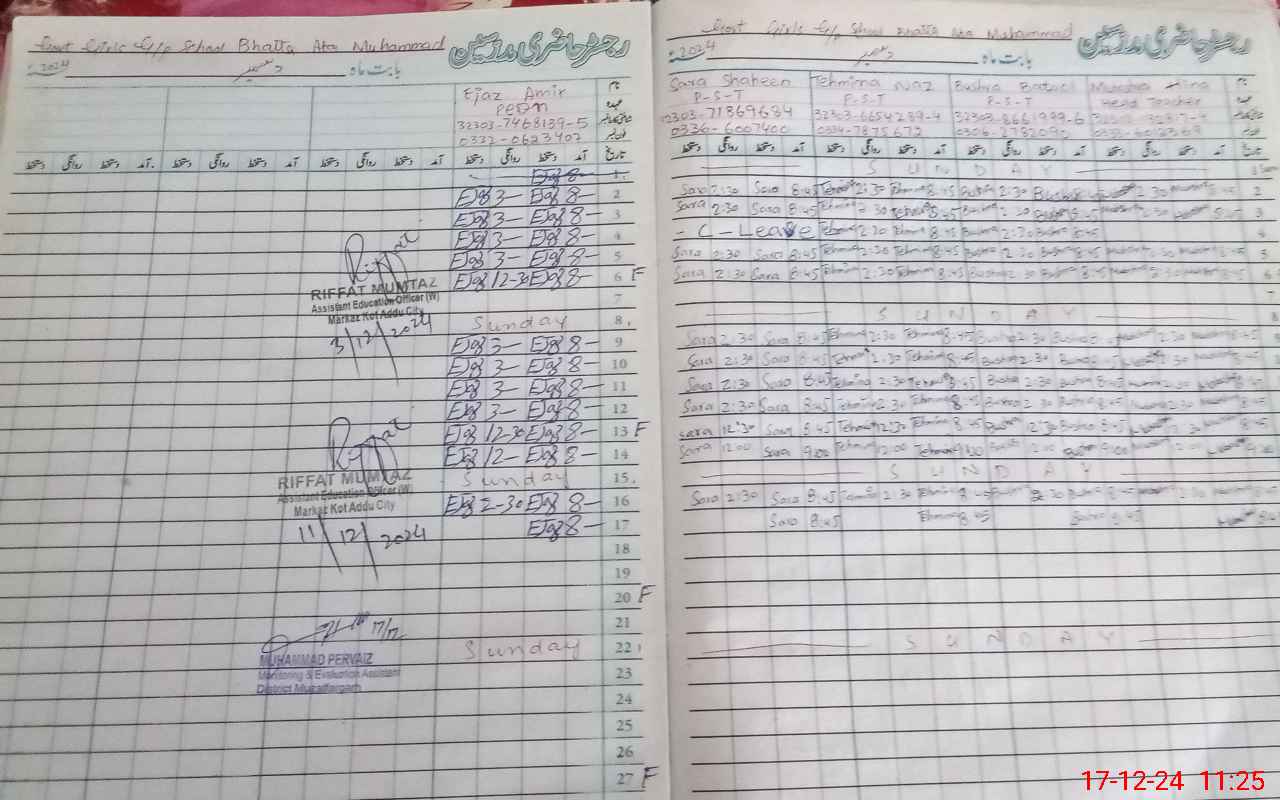 Govt Girls E/p School Bhatta Ata Muhammad رجسٹر حاضری مدرسین
2024 دسمبر بابت ماہ
Ejaz Amir نام
PESN عہدہ
32303-7468139-5
0332-0623402
دستخط روانگی دستخط آمد دستخط روانگی دستخط آمد دستخط روانگی دستخط آمد دستخط روانگی دستخط آمد تاریخ
Ejaz 8- 1
Ejaz 3- Ejaz 8- 2
Ejaz 3- Ejaz 8- 3
Ejaz 3- Ejaz 8- 4
Ejaz 3- Ejaz 8- 5
Ejaz 12-30 Ejaz 8- 6 F
7
Sunday 8
Ejaz 3- Ejaz 8- 9
Ejaz 3- Ejaz 8- 10
Ejaz 3- Ejaz 8- 11
Ejaz 3- Ejaz 8- 12
Ejaz 12-30 Ejaz 8- 13 F
Ejaz 12- Ejaz 8- 14
Sunday 15
Ejaz 2-30 Ejaz 8- 16
Ejaz 8- 17
18
19
20 F
21
Sunday 22
23
24
25
26
27 F
Riffat
RIFFAT MUMTAZ
Assistant Education Officer (W)
Markaz Kot Addu City
3/12/2024
Riffat
RIFFAT MUMTAZ
Assistant Education Officer (W)
Markaz Kot Addu City
11/12/2024
17/12
MUHAMMAD PERVAIZ
Monitoring & Evaluation Assistant
District Muzaffargarh
Govt Girls E/p School Bhatta Ata Muhammad رجسٹر حاضری مدرسین
2024 دسمبر بابت ماہ
Sara Shaheen Tehmina Naz Bushra Batool Hina نام
P-S-T P-S-T P-S-T Head Teacher عہدہ
32303-6654239-4
0336-6007400 0334-7875672
دستخط روانگی دستخط آمد دستخط روانگی دستخط آمد دستخط روانگی دستخط آمد دستخط روانگی دستخط آمد تاریخ
SUNDAY
Sara 2:30 Sara 8:45 Tehmina 2:30 Tehmina 8:45 Bushra 2:30 Bushra 8:45 2:30 8:45 2
Sara 2:30 Sara 8:45 Tehmina 2:30 Tehmina 8:45 Bushra 2:30 Bushra 8:45 2:30 8:45 3
- C - Leave Tehmina 2:30 Tehmina 8:45 Bushra 2:30 Bushra 8:45 4
Sara 2:30 Sara 8:45 Tehmina 2:30 Tehmina 8:45 Bushra 2:30 Bushra 8:45 2:30 8:45 5
Sara 2:30 Sara 8:45 Tehmina 2:30 Tehmina 8:45 Bushra 2:30 Bushra 8:45 2:30 8:45 6
7
SUNDAY 8
Sara 2:30 Sara 8:45 Tehmina 2:30 Tehmina 8:45 Bushra 2:30 Bushra 2:30 8:45
Sara 2:30 Sara 8:45 Tehmina 2:30 Tehmina 8:45 Bushra 2:30 Bushra 8:45 2:30 8:45
Sara 2:30 Sara 8:45 Tehmina 2:30 Tehmina 8:45 Bushra 2:30 Bushra 8:45 2:30 8:45
Sara 2:30 Sara 8:45 Tehmina 2:30 Tehmina 8:45 Bushra 2:30 Bushra 8:45 2:30 8:45
Sara 12:30 Sara 8:45 Tehmina 12:30 Tehmina 8:45 Bushra 12:30 Bushra 8:45
Sara 12:00 Sara 9:00 Tehmina 12:00 Tehmina 9:00 Bushra 9:00
SUNDAY
Sara 2:30 Sara 8:45 Tehmina 2:30 Tehmina 8:45 Bushra 2:30 Bushra 8:45 2:30 8:45
Sara 8:45 Tehmina 8:45 Bushra 8:45 8:45
SUNDAY
17-12-24 11:25